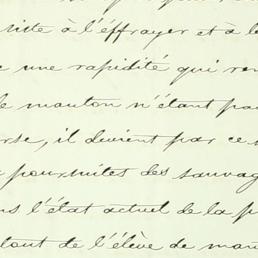 siste à l'éffrayer et à le
une rapidité qui ren
le mouton n'étant pas
rse, il devient par ce
poursuites des sauvag
ns l'état actuel de la p
tout de l'élève de mou